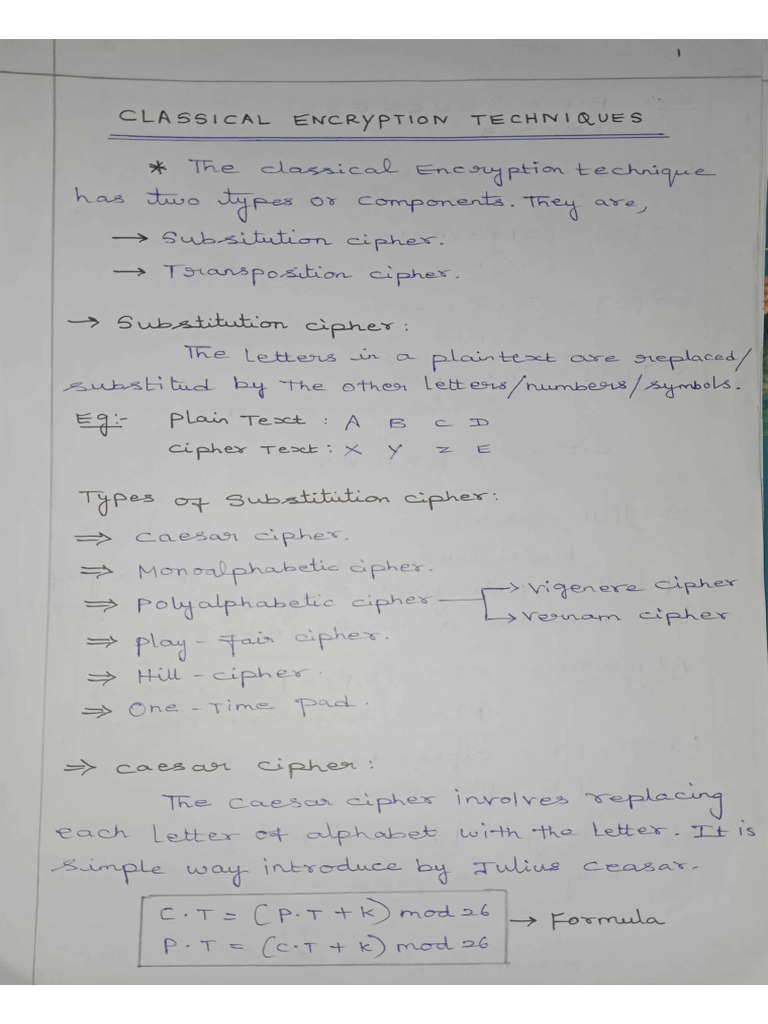 1
CLASSICAL ENCRYPTION TECHNIQUES
* The classical Encryption technique
has two types or components. They are,
→ Subsitution cipher.
→ Transposition cipher.
→ Substitution cipher:
The letters in a plaintext are replaced/
substitud by the other letters/numbers/symbols.
Eg:- Plain Text : A B C D
Cipher Text : X Y Z E
Types of Substitution cipher:
⇒ Caesar cipher.
⇒ Monoalphabetic cipher.
⇒ Polyalphabetic cipher → Vigenere cipher
→ Vernam cipher
⇒ Play-fair cipher.
⇒ Hill-cipher.
⇒ One-Time pad.
⇒ Caesar cipher:
The Caesar cipher involves replacing
each letter of alphabet with the letter. It is
simple way introduce by Julius Ceasar.
C.T = (P.T + K) mod 26 → Formula
P.T = (C.T + K) mod 26